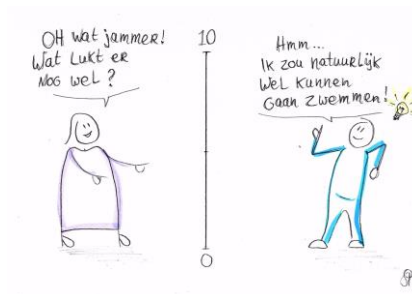 OH wat jammer!
Wat Lukt er
Nog wel?
10
Hmm...
Ik zou natuurlijk
Wel kunnen
Gaan zwemmen!
0